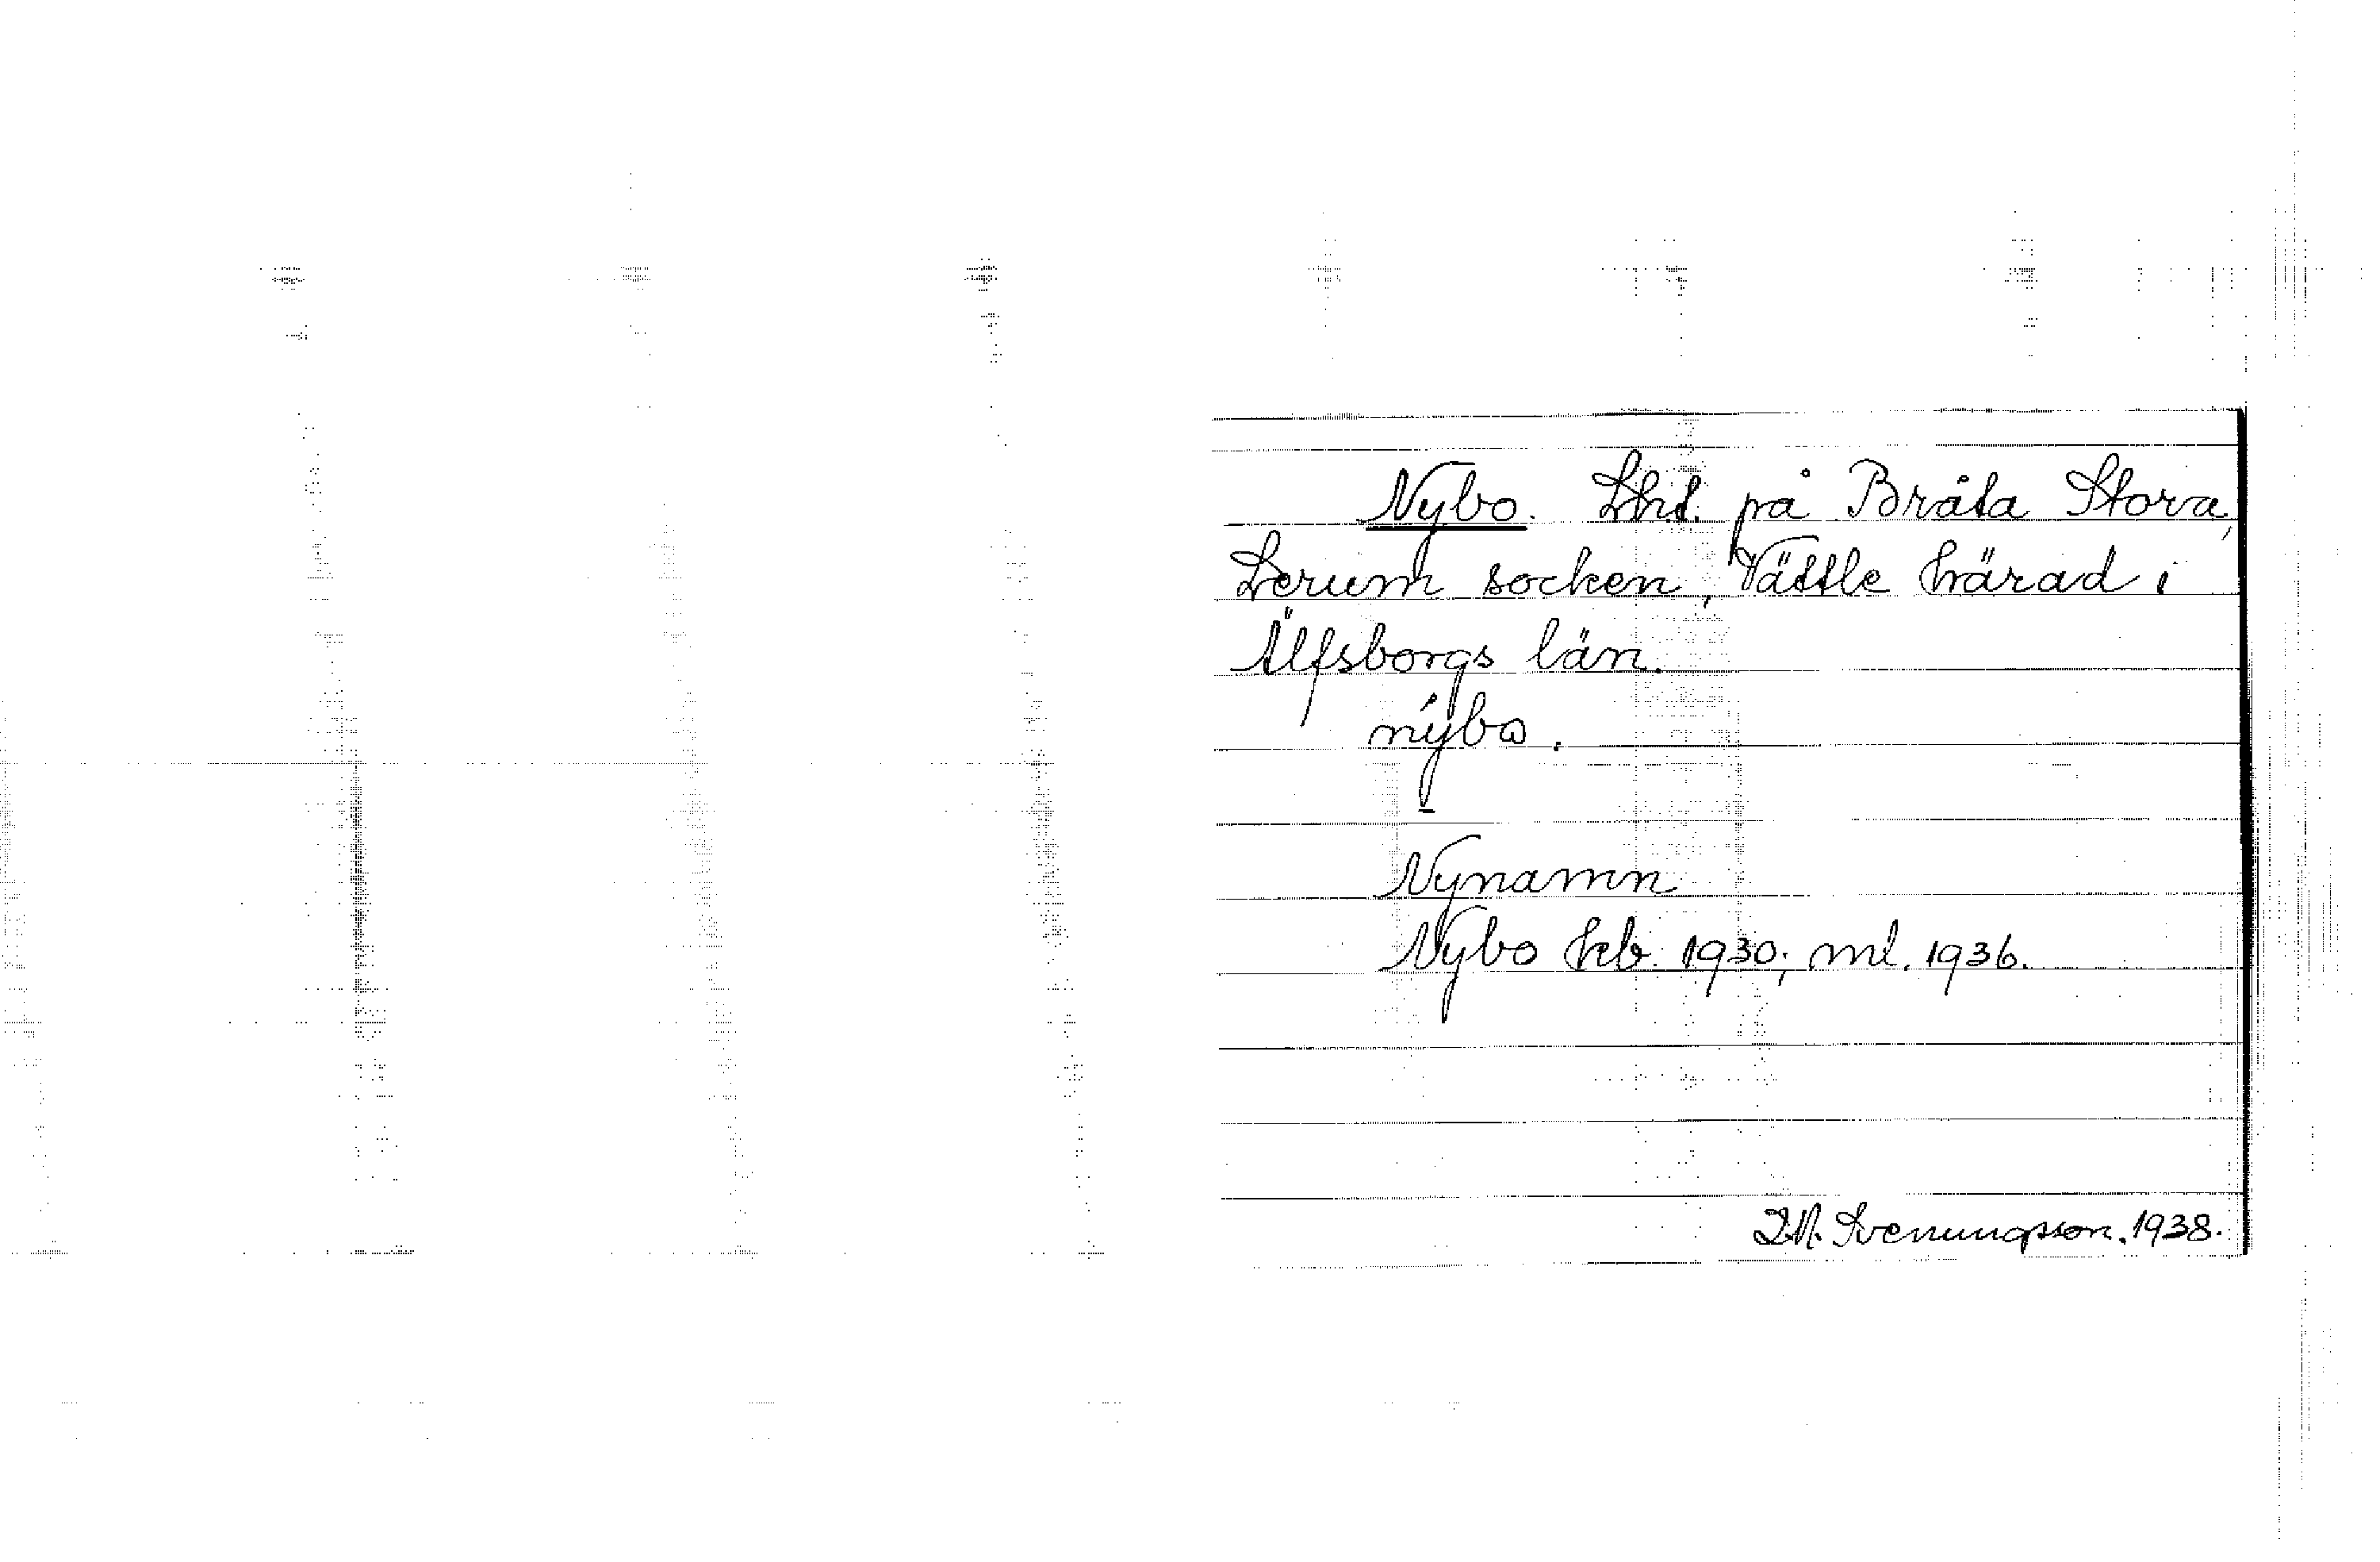 Nybo. Lht. på Bråta Stora,
Lerum socken, Vättle härad i
Älfsborgs län.
nýbω.
Nynamn
Nybo hb. 1930; ml. 1936.
Svenungsson. 1938.